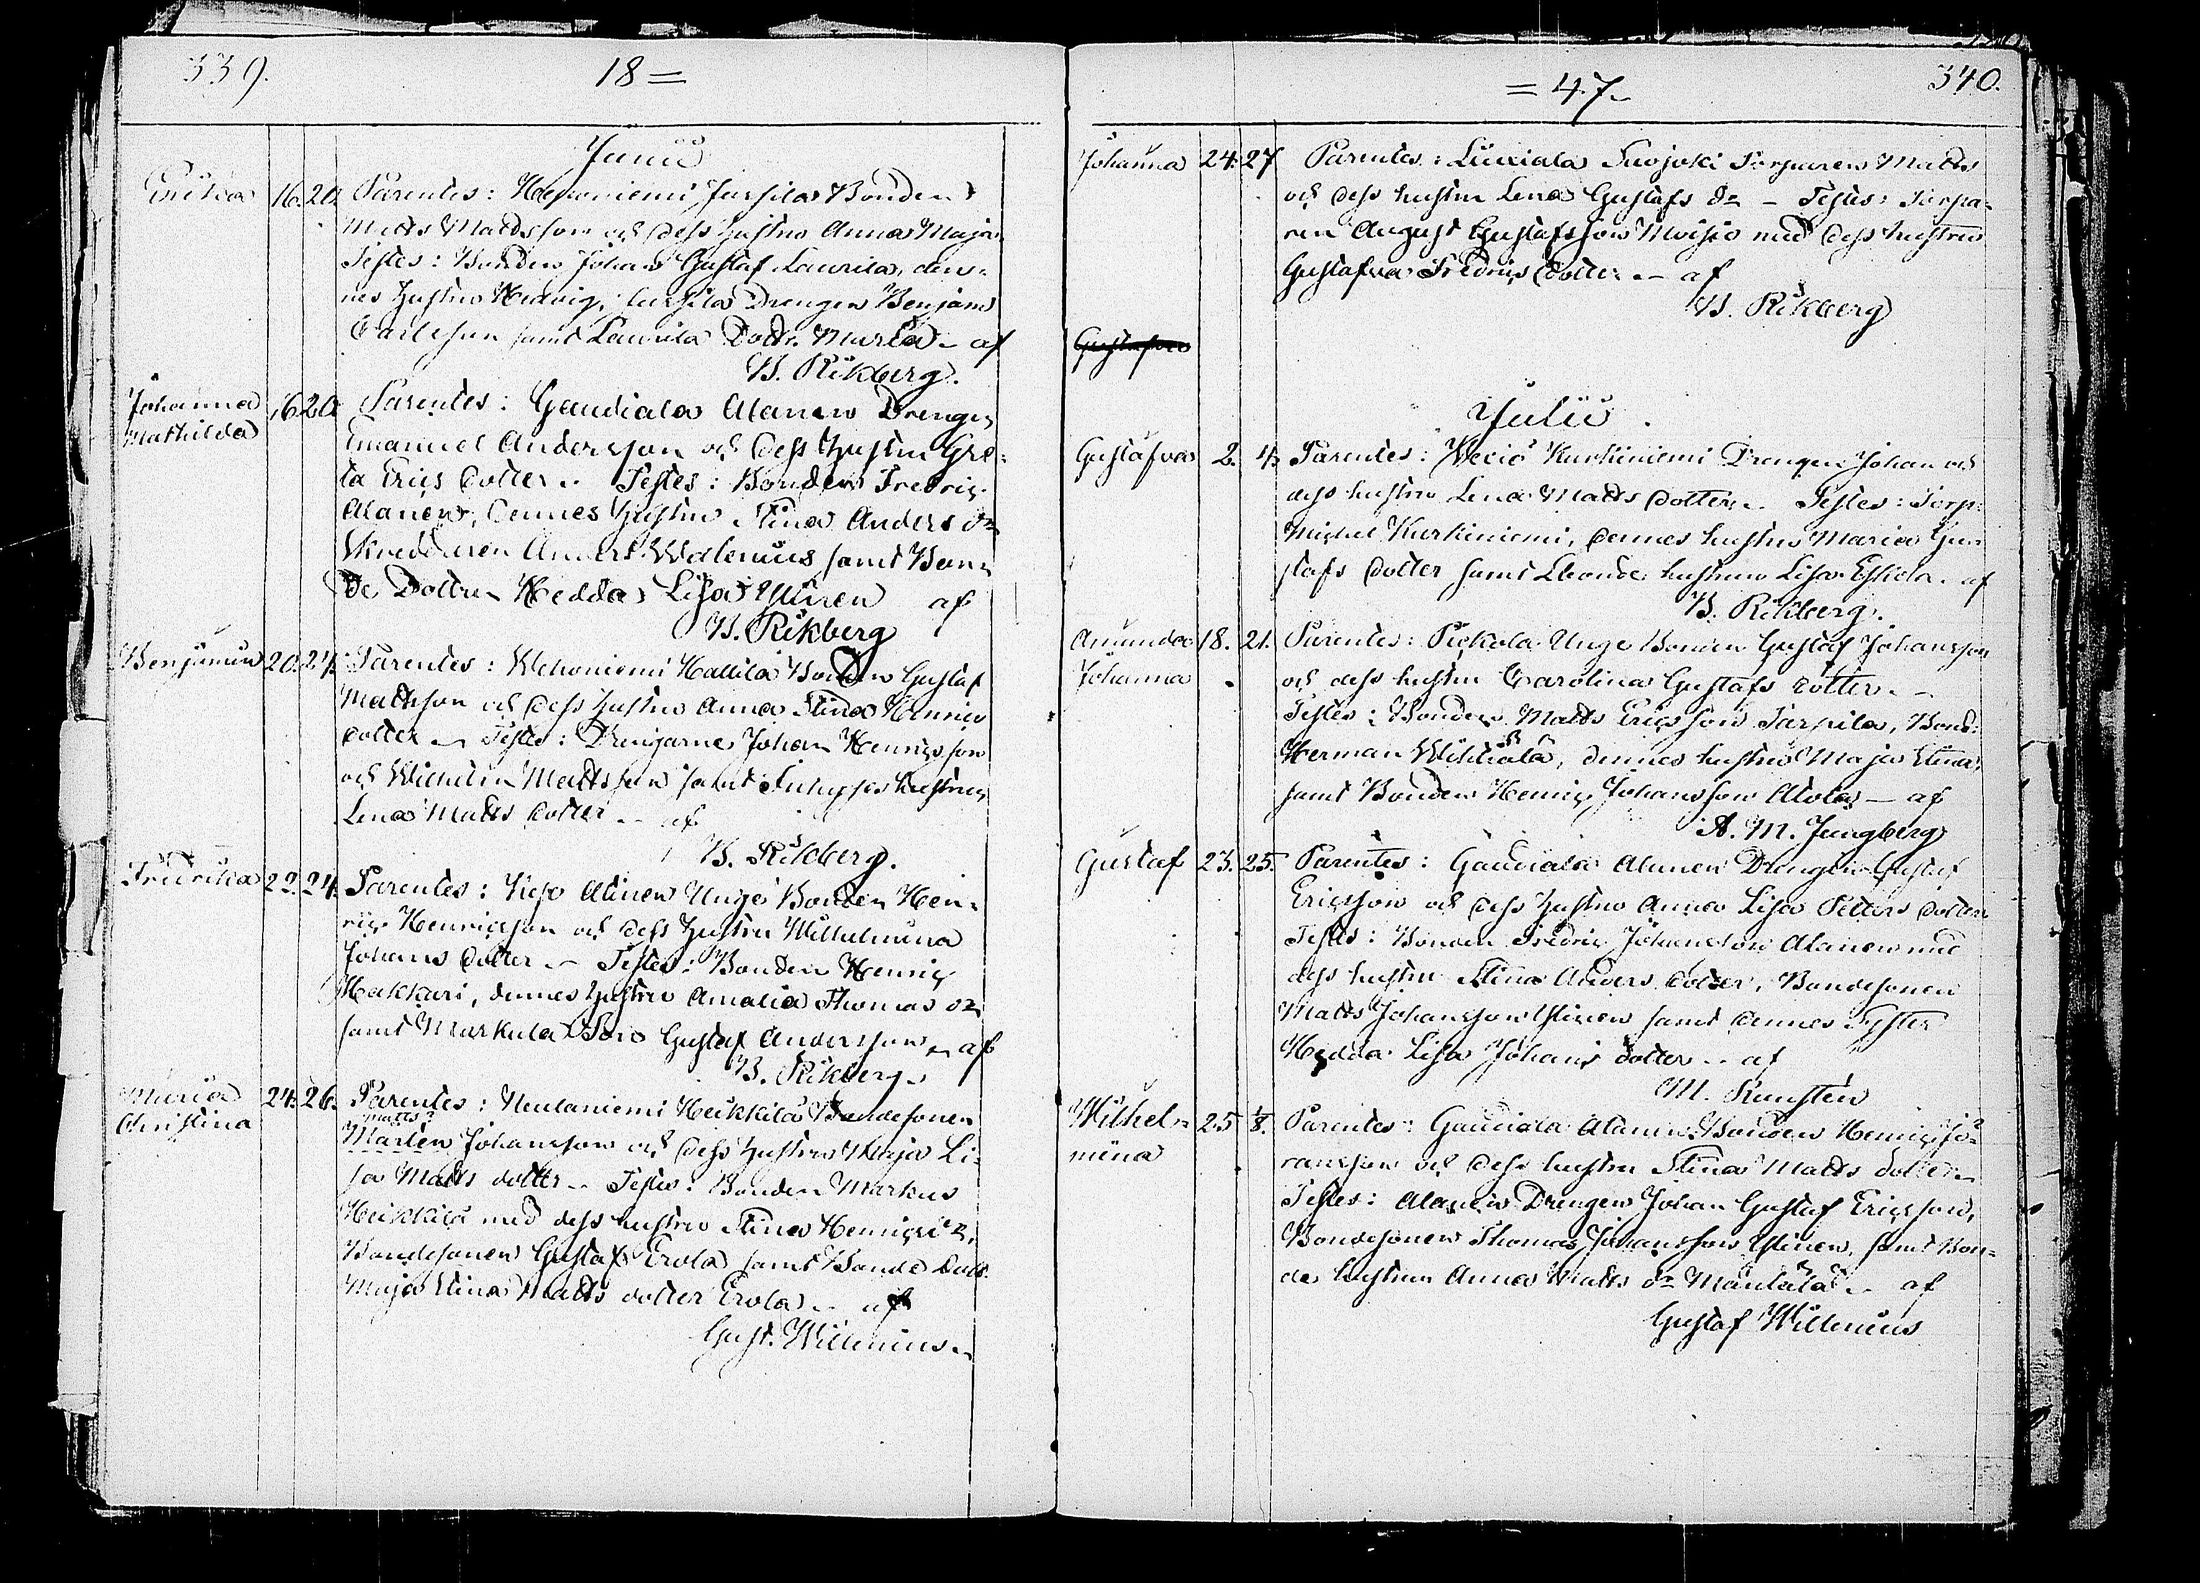 339.
18=
Junii
Erika 16. 20. Parentes: Heponiemi Jussila Bonden
Matts Mattsson och dess hustru Anna Maja
Testes: Bonden Johan Gustaf Laurila, den-
nes hustru Hedvig, Jussila Drengen Benjam
Carlsson samt Laurila Dottr. Maria - af
B. Rikberg.
Johanna 16. 20. Parentes: Gaudiala Alanen Dreng.
Mathilda Emanuel Andersson och dess hustru Gre-
ta Erics dotter. Testes: Bonden Fredric
Alanen, dennes hustru Stina Anders dr
Anders Walenius samt Bon-
de Dottren Hedda Lisa Ylinen af
B. Rikberg
Benjamin 20. 24. Parentes: Wehoniemi Hallila Bonden Gustaf
Mattsson och dess hustru Anna Stina Henrics
dotter - Testes: Drengarne Johan Henricsson
och Wilhelm Mattsson samt hustrun
Lena Matts dotter - af
B. Rikberg.
Fredrika 22. 24. Parentes: Alinen Unge Bonden Hen-
ric Henricsson och dess hustru Wilhelmina
Johans dotter - Testes: Bonden Henric
Hakkari, dennes hustru Amalia Thomas dr
samt Markula Son Gustaf Andersson - af
B. Rikberg -
Maria 24. 26. Parentes: Heikkilä Bondesonen
Christina Matts?
Marten Johansson och dess hustru Maja Li-
sa Matts dotter - Testes: Bonden Markus
Heikkilä med dess hustru Stina Henrics dr,
Bondesonen Gustaf Erola samt Bonde Dott.
Maja Stina Matts dotter Erola - af
Gust. Willenius -
=47-
340.
Johanna 24. 27 Parentes: Suojoki Torparen Matts
och dess hustru Lena Gustafs dr - Testes: Torpa-
ren August Gustafsson Moisio med dess hustru
Gustafva Fredrics dotter - af
B. Rikberg
Gustafva
Julii
Gustafva 2. 4. Parentes: Kurkiniemi Drengen Johan och
dess hustru Lena Matts dotter. Testes: Torp.
Michel Kurkiniemi, dennes hustru Maria Gu-
stafs dotter samt Bonde hustrun Lisa Eskola - af
B. Rikberg.
Amanda 18. 21. Parentes: Unge Bonden Gustaf Johansson
Johanna och dess hustru Carolina Gustafs dotter. -
Testes: Bonden Matts Ericsson Tarpila, Bond.
Herman, dennes hustru Maja Stina,
samt Bonden Henric Johansson Alola - af
A. M. Jungberg
Gustaf 23. 25. Parentes: Gaudiala Alanen Drengen Gustaf
Ericsson och dess hustru Anna Lisa Petters dotter
Testes: Bonden Fredric Johansson Alanen med
dess hustru Stina Anders dotter, Bondesonen
Matts Johansson Ylinen samt dennes Syster
Hedda Lisa Johans dotter - af
M. Runsten
Wilhel- 25 1/8. Parentes: Gaudiala Alanen Bonden Henric Jö-
mina ransson och dess hustru Stina Matts dotter -
Testes: Alanen Drengen Johan Gustaf Ericsson,
Bondesonen Thomas Johansson Ylinen, samt Bon-
de hustrun Anna Matts dr Mäntälä - af
Gustaf Willenius